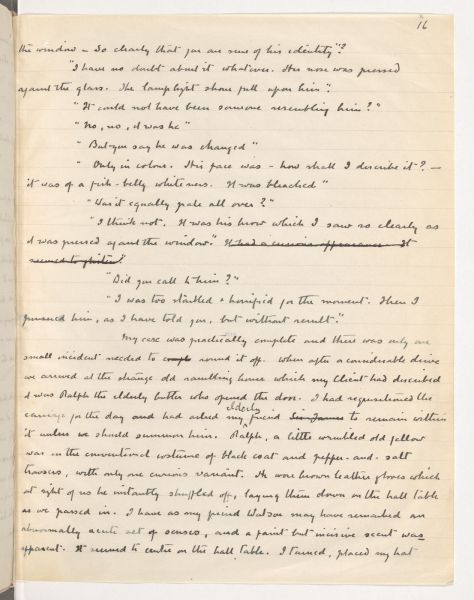 16
the window – so clearly that you are sure of his identity"?
"I have no doubt about it whatever. His nose was pressed
against the glass. The lamplight shone full upon him".
"It could not have been someone resembling him?"
"No, no, it was he"
"But you say he was changed"
"Only in colour. His face was – how shall I describe it? –
it was of a fish-belly whiteness. It was bleached"
"Was it equally pale all over?"
"I think not. It was his brow which I saw so clearly as
it was pressed against the window." It had a curious appearance. It
seemed to glisten."
"Did you call to him?"
"I was too startled & horrified for the moment. Then I
pursued him, as I have told you, but without result."
My case was practically complete and there was only one
small incident needed to round it off. When after a considerable drive
we arrived at the strange old rambling house which my Client had described
it was Ralph the elderly butler who opened the door. I had requisitioned the
carriage for the day and had asked my elderly friend Sir James to remain within
it unless we should summon him. Ralph, a little wrinkled old fellow
was in the conventional costume of black coat and pepper-and-salt
trousers, with only one curious variant. He wore brown leather gloves which
at sight of us he instantly shuffled off, laying them down on the hall table
as we passed in. I have as my friend Watson may have remarked an
abnormally acute set of senses, and a faint but incisive scent was
apparent. It seemed to centre on the hall table. I turned, placed my hat